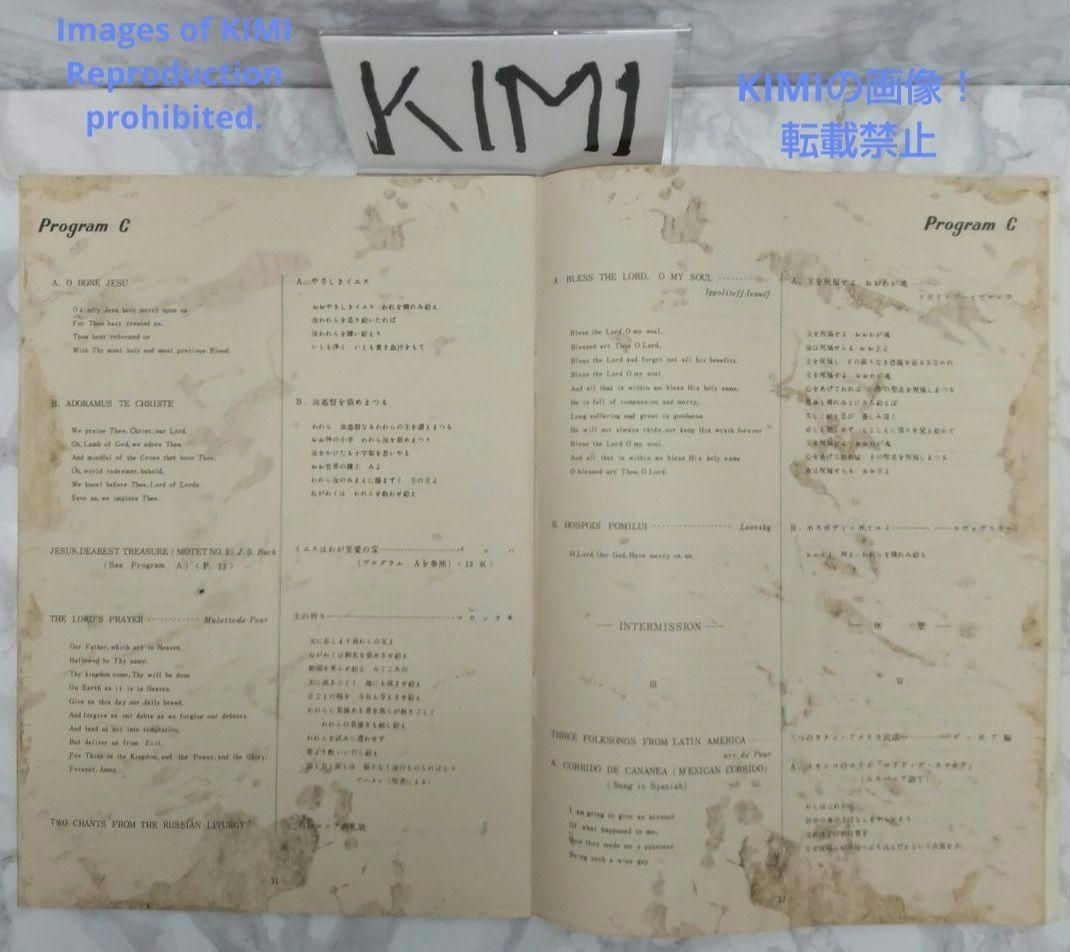 Images of KIMI
Reproduction
prohibited.
KIMI
KIMIの画像！
転載禁止
Program C
A. O BONE JESU
O kindly Jesu, have mercy upon us
For Thou hast created us,
Thou hast redeemed us
With Thy most holy and most precious Blood.
A. やさしきイエス
おおやさしきイエス われを憐れみ給え
汝われらを造り給いたれば
汝われらを贖い給えり
いとも浄く いとも貴き血汐をもて
B. ADORAMUS TE CHRISTE
We praise Thee, Christ, our Lord.
Oh, Lamb of God, we adore Thee.
And mindful of the Cross that bore Thee.
Oh, world redeemer, behold,
We kneel before Thee, Lord of Lords.
Save us, we implore Thee.
B. 汝基督を崇めまつる
われら 汝基督なるわれらの主を讃えまつる
おお神の小羊 われら汝を崇めまつり
汝をかけたる十字架を思いやる
おお世界の贖主 みよ
われら汝のみまえに跪まずく 主の主よ
ねがわくは われらを救わせ給え
JESUS, DEAREST TREASURE (MOTET NO. 3) J. S. Bach
(See Program A) (P. 13)
イエスはわが至愛の宝………………バ ッ ハ
(プログラム Aを参照) (13 頁)
THE LORD'S PRAYER ………… Malottede Paur
Our Father, which art in Heaven,
Hallowed be Thy name.
Thy kingdom come, Thy will be done
On Earth as it is in Heaven.
Give us this day our daily bread,
And forgive us our debts as we forgive our debtors
And lead us not into temptation,
But deliver us from Evil,
For Thine is the Kingdom, and the Power, and the Glory,
Forever, Amen.
主の祈り
天に在します我らの父よ
ねがわくは御名を崇めさせ給え
御国を来らせ給え みこころの
天に成るごとく 地にも成させ給え
日ごとの糧を 今日も与えさせ給え
われらに負債ある者を我らが赦すごとく
われらの負債をも赦し給え
われらを試みに遭わせず
悪より救いいだし給え
アーメン (聖書による)
TWO CHANTS FROM THE RUSSIAN LITURGY
31
Program C
A. BLESS THE LORD, O MY SOUL ………
Ippolitoff-Ivanof
Bless the Lord, O my soul,
Blessed art Thou O Lord,
Bless the Lord and forget not all his benefits,
Bless the Lord O my soul
And all that is within me bless His holy name,
He is full of compassion and mercy,
Long suffering and great in goodness
He will not always chide, nor keep His wrath forever
Bless the Lord O my soul,
And all that is within me bless His holy name
O blessed art Thou, O Lord.
A. 主を祝福せよ おおわが魂
主を祝福せよ おおわが魂
主を祝福せよ おおわが魂
B. HOSPODI POMILUI ……………………… Lvovsky
O Lord, Our God, Have mercy on us.
B. ホスポディ・ポミルイ
— INTERMISSION —
— 休 憩 —
III
III
THREE FOLKSONGS FROM LATIN AMERICA ……
arr. de Paur
三つのラテン・アメリカ民謡
A. CORRIDO DE CANANEA (MEXICAN CORRIDO)
(Sung in Spanish)
(スペイン語で)
I am going to give an account
Of what happened to me,
How they made me a prisoner
Being such a wise guy.
32